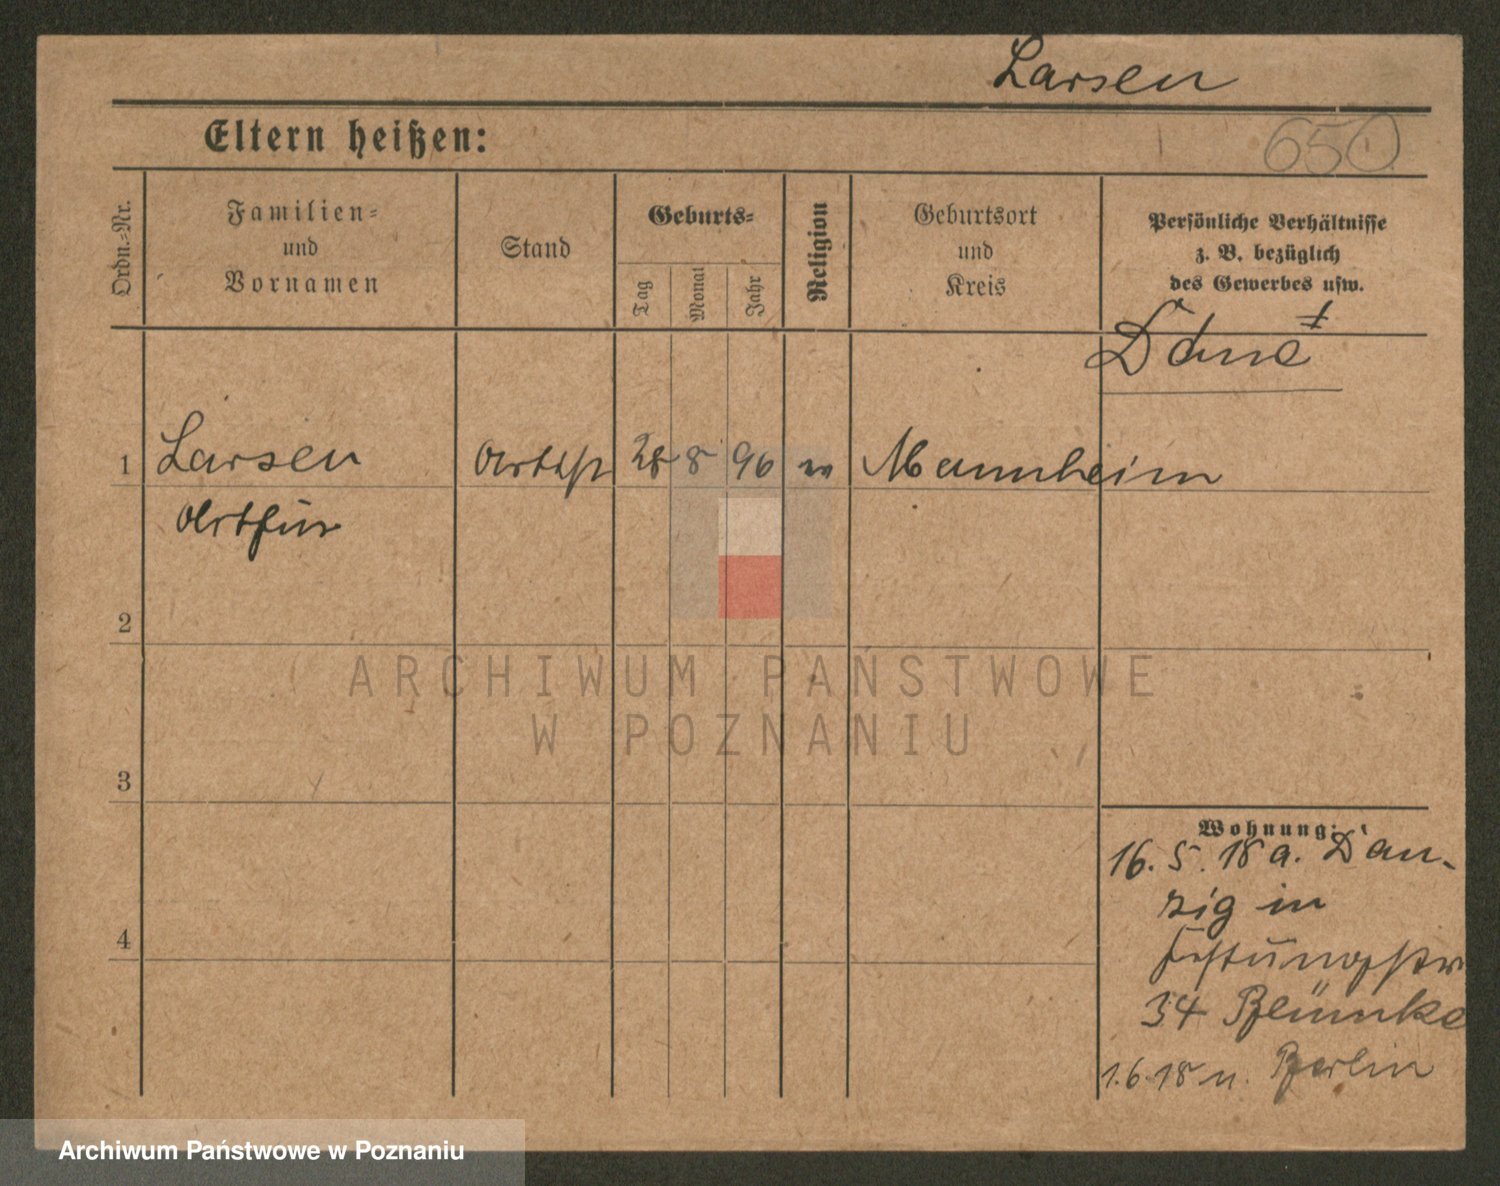 Larsen
Eltern heißen:
650
Ordn.-Nr.
Familien-
und
Vornamen
Stand
Geburts-
Tag
Monat
Jahr
Religion
Geburtsort
und
Kreis
Persönliche Verhältnisse
z. B. bezüglich
des Gewerbes usw.
Däne
1 Larsen Artist 28 8 96 Mannheim
Arthur
2
3
4
Wohnung:
16. 5. 18 a. Dan-
zig in
34
1. 6. 18 n. Berlin
ARCHIWUM PAŃSTWOWE
W POZNANIU
Archiwum Państwowe w Poznaniu